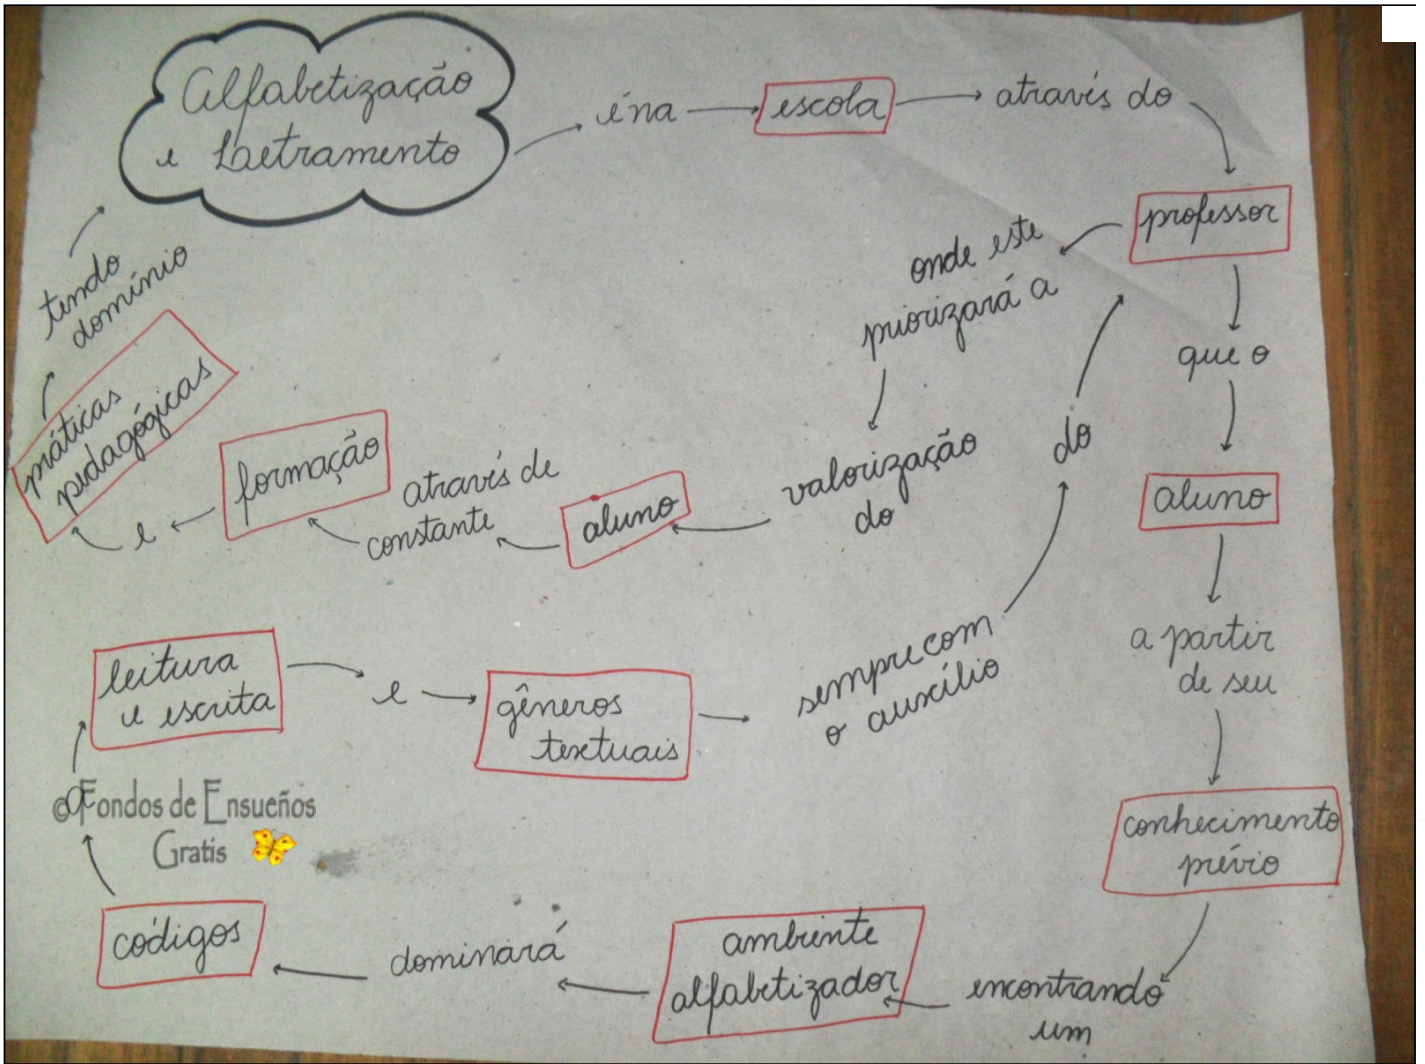 Alfabetização
e Laetramento
é na
escola
através do
professor
que o
aluno
a partir
de seu
conhecimento
prévio
encontrando
um
ambiente
alfabetizador
dominará
códigos
©Fondos de Ensueños
Gratis
leitura
e escrita
e
gêneros
textuais
sempre com
o auxílio
do
onde este
priorizará a
valorização
do
aluno
através de
constante
formação
e
práticas
pedagógicas
tendo
domínio